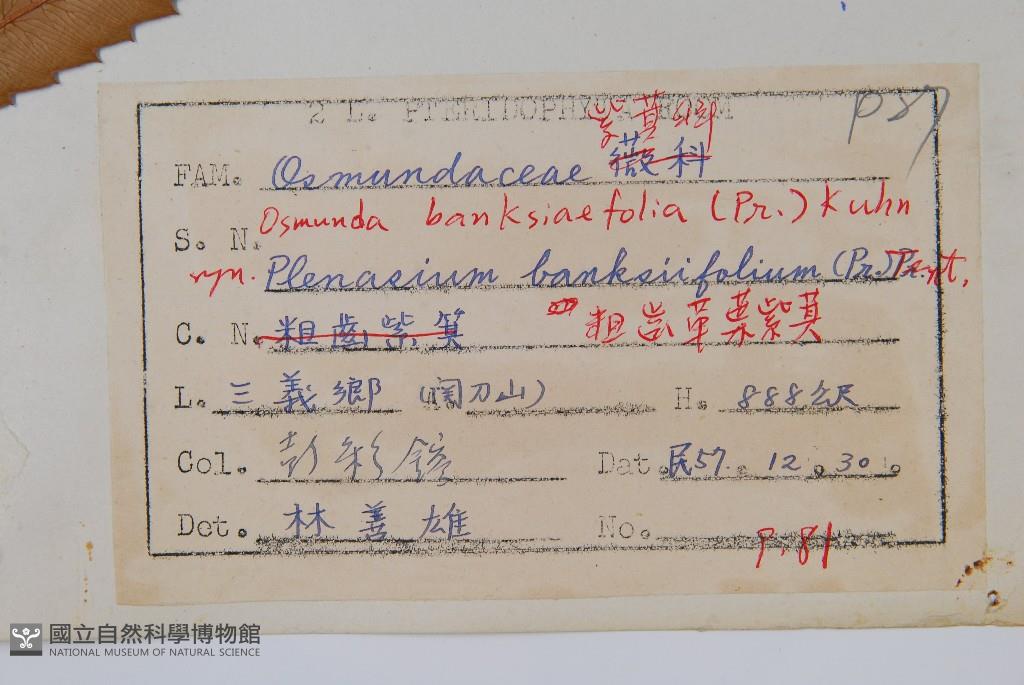 P87
紫萁科
FAM. Osmundaceae 薇科
Osmunda banksiaefolia (Pr.) Kuhn
S. N.
syn. Plenasium banksiifolium (Pr.) Prest.
C. N. 粗齒紫箕 粗齿革葉紫萁
L. 三義鄉 (關刀山) H. 888公尺
Col. 彭彩鎔 Dat. 民57.12.30.
Det. 林善雄 No.
P.81
國立自然科學博物館
NATIONAL MUSEUM OF NATURAL SCIENCE